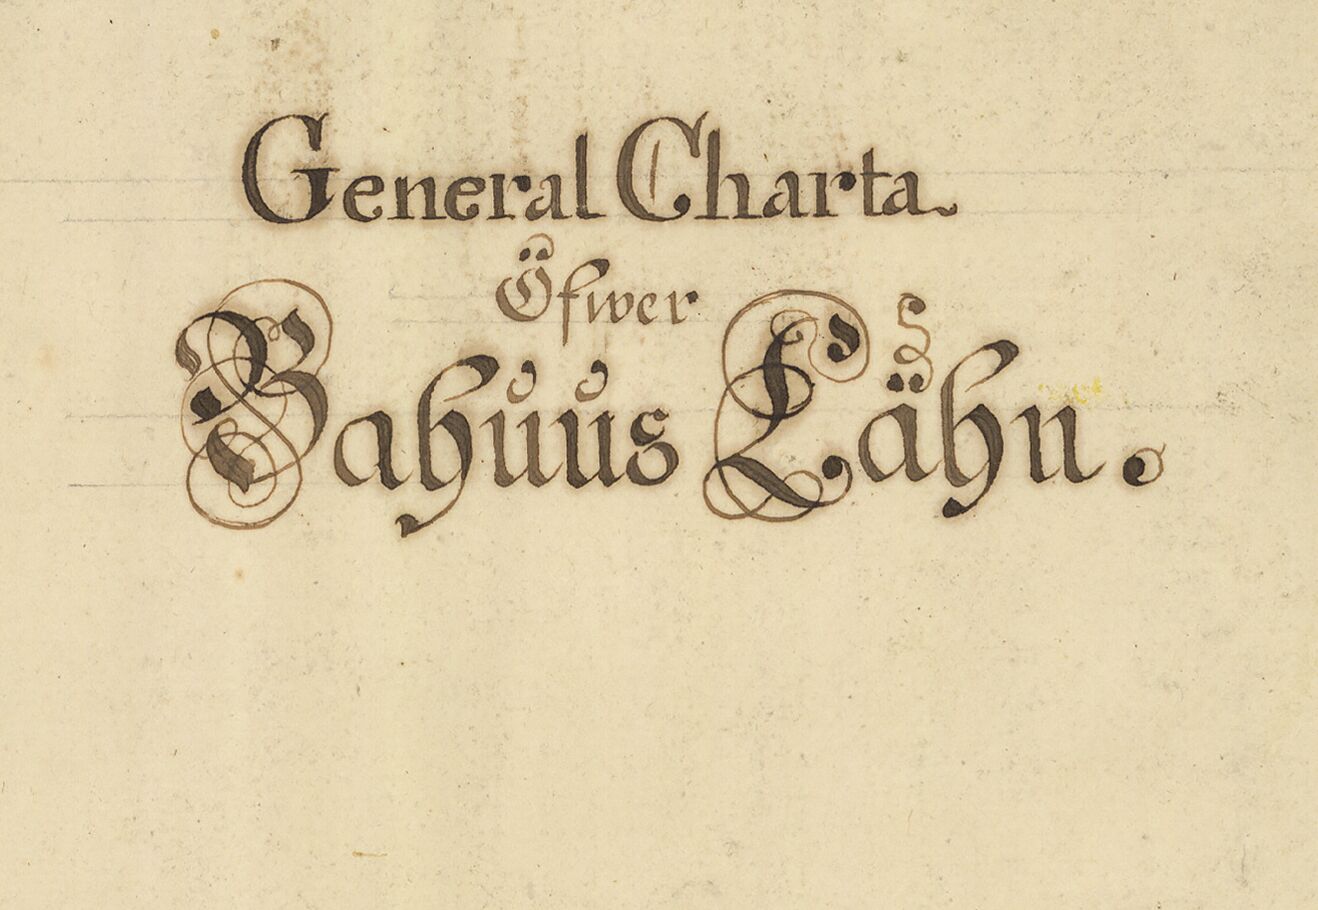 General Charta
Öfwer
Bahuus Lähn.